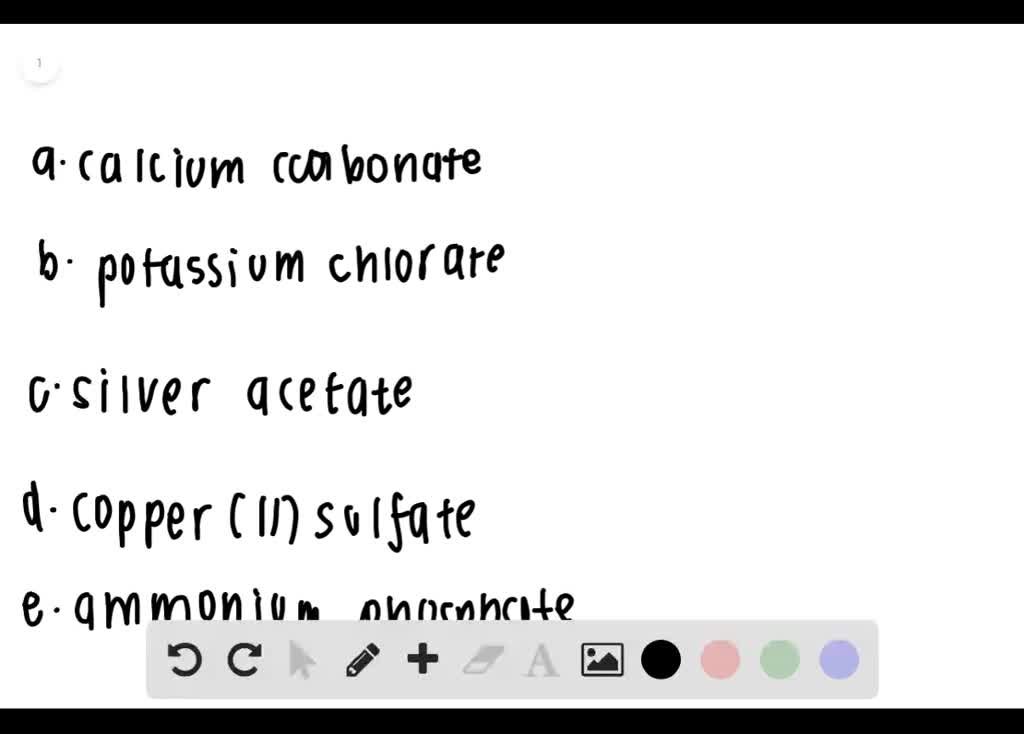 1
a. calcium ccarbonate
b. potassium chlorate
c. silver acetate
d. copper (II) sulfate
e. ammonium phosphate
A